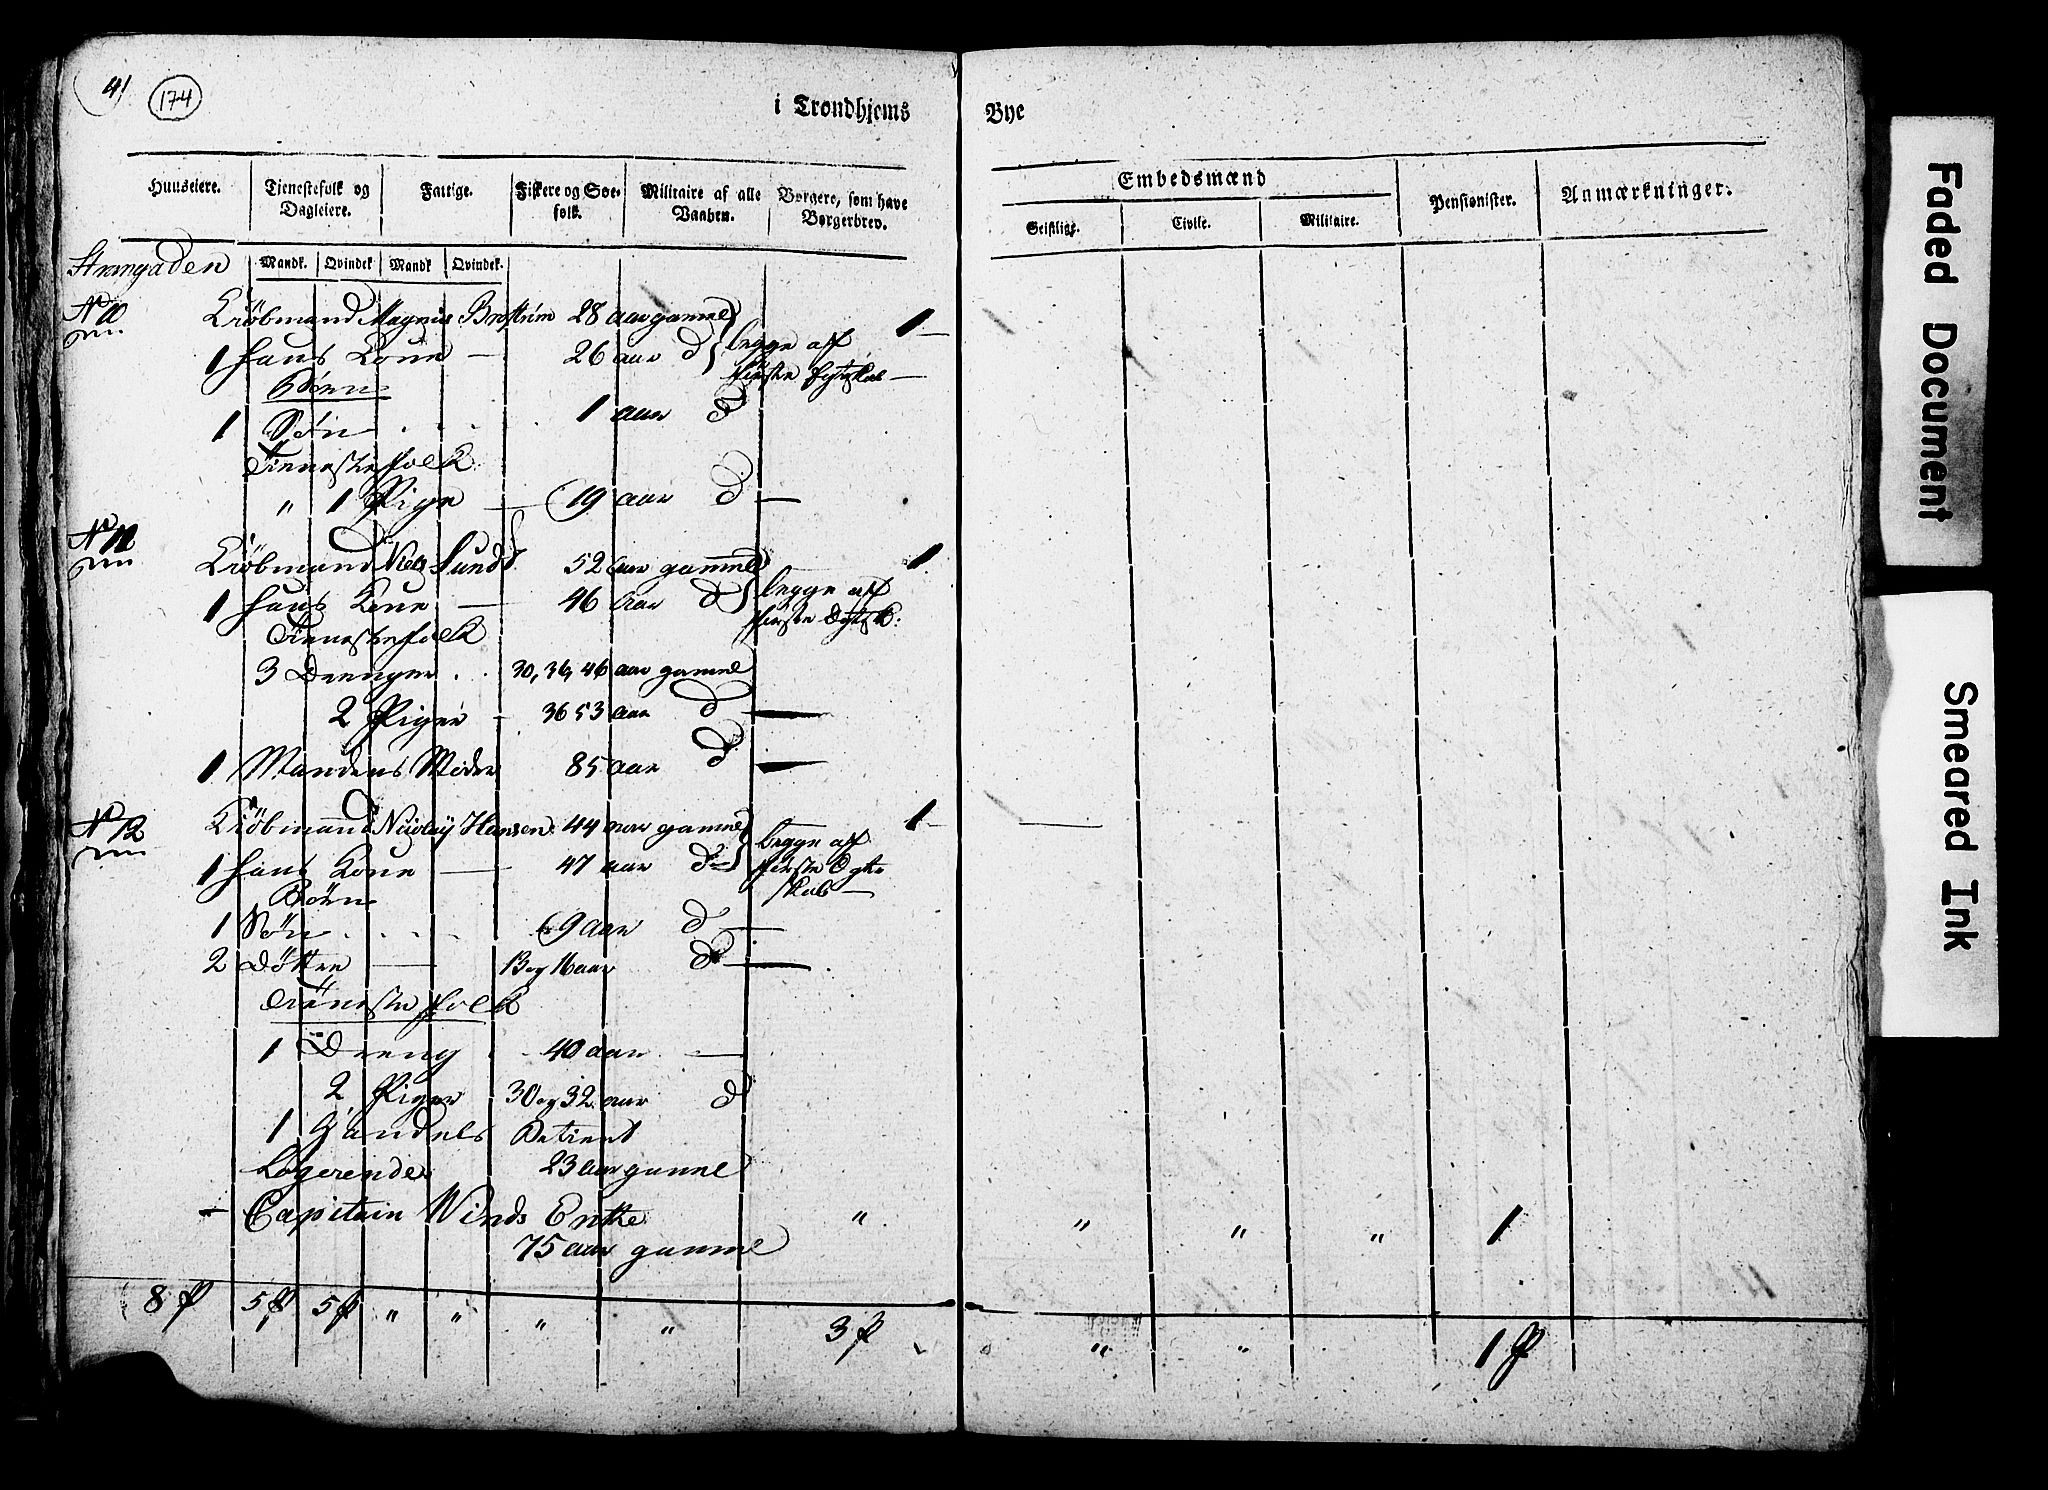 41
174
i Trondhjems Bye
Huuseiere. Tienestefolk og Dagleiere. Fattige. Fiskere og Søefolk. Militaire af alle Vaaben. Borgere, som have Borgerbrev. Embedsmænd Pensionister. Anmærkninger.
Geistlige. Civile. Militaire.
Mandk. Qvindek Mandk Qvindek.
Strangaden
N 10 Kiöbmand Magnus Broström 28 aar gamel 1
1 hans Kone 26 aar d begge af
første Egtskab
Börn
1 Sön 1 aar d
Tienestefolk
" 1 Pige 19 aar d
N 11
Kiöbmand Niels Lund 52 aar gammel 1
1 hans Kone 46 aar d begge af
Tienestefolk første Egtsk:
3 Drenger 30, 36, 46 aar gamel
2 Piger 36 53 aar d
1 Mandens Moder 85 aar d
N 12 Kiöbmand Nicolay Hansen 44 aar gamel 1
1 hans Kone 47 aar d begge af
første Egte
skab
Börn
1 Sön 9 aar d
2 Döttre 13 og 16 aar d
Tienestefolk
1 Dreng 40 aar
2 Piger 30 og 32 aar d
1 Handels Betient
Logerende 23 aar gamel
Capitain Winds Enke " " " " 1
75 aar gamel
8 P 5 P 5 P " " " " 3 P " " 1 P
Faded Document
Smeared Ink